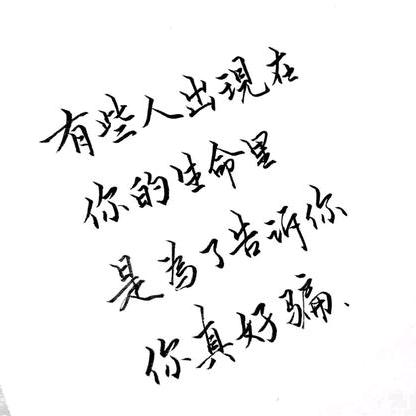 有些人出現在
你的生命里
是為了告訴你
你真好騙、